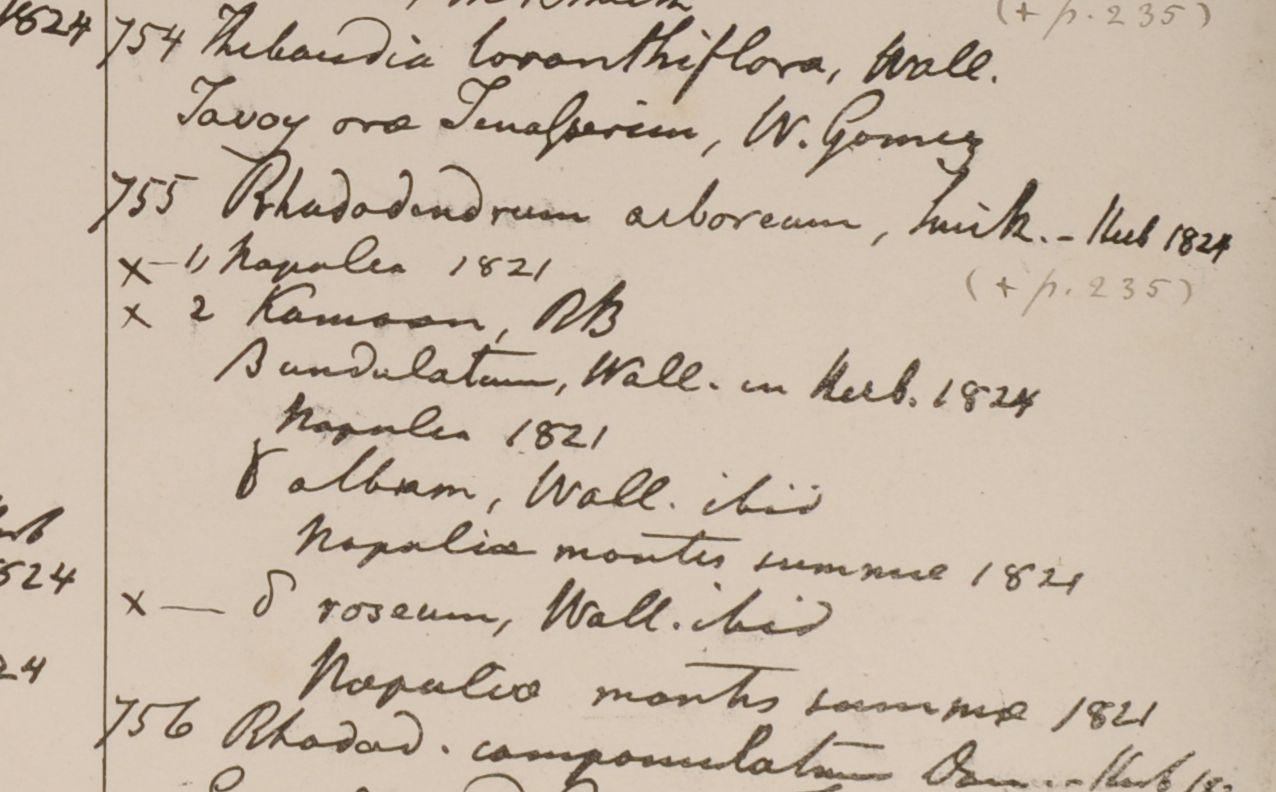 (+ p. 235)
1824
754 Thibaudia loranthiflora, Wall.
Tavoy oræ Tenasserim, W. Gomez
755 Rhododendrum arboreum, Smith. - Herb 1824
x — 1, Napalia 1821
(+ p. 235)
x 2 Kamaon, RB
β undulatum, Wall. in Herb. 1824
Napalia 1821
γ album, Wall. ibid
Napaliæ montes summæ 1821
524
x — δ roseum, Wall. ibid
24
Napaliæ montes summæ 1821
756 Rhodod. campanulatum Don. - Herb